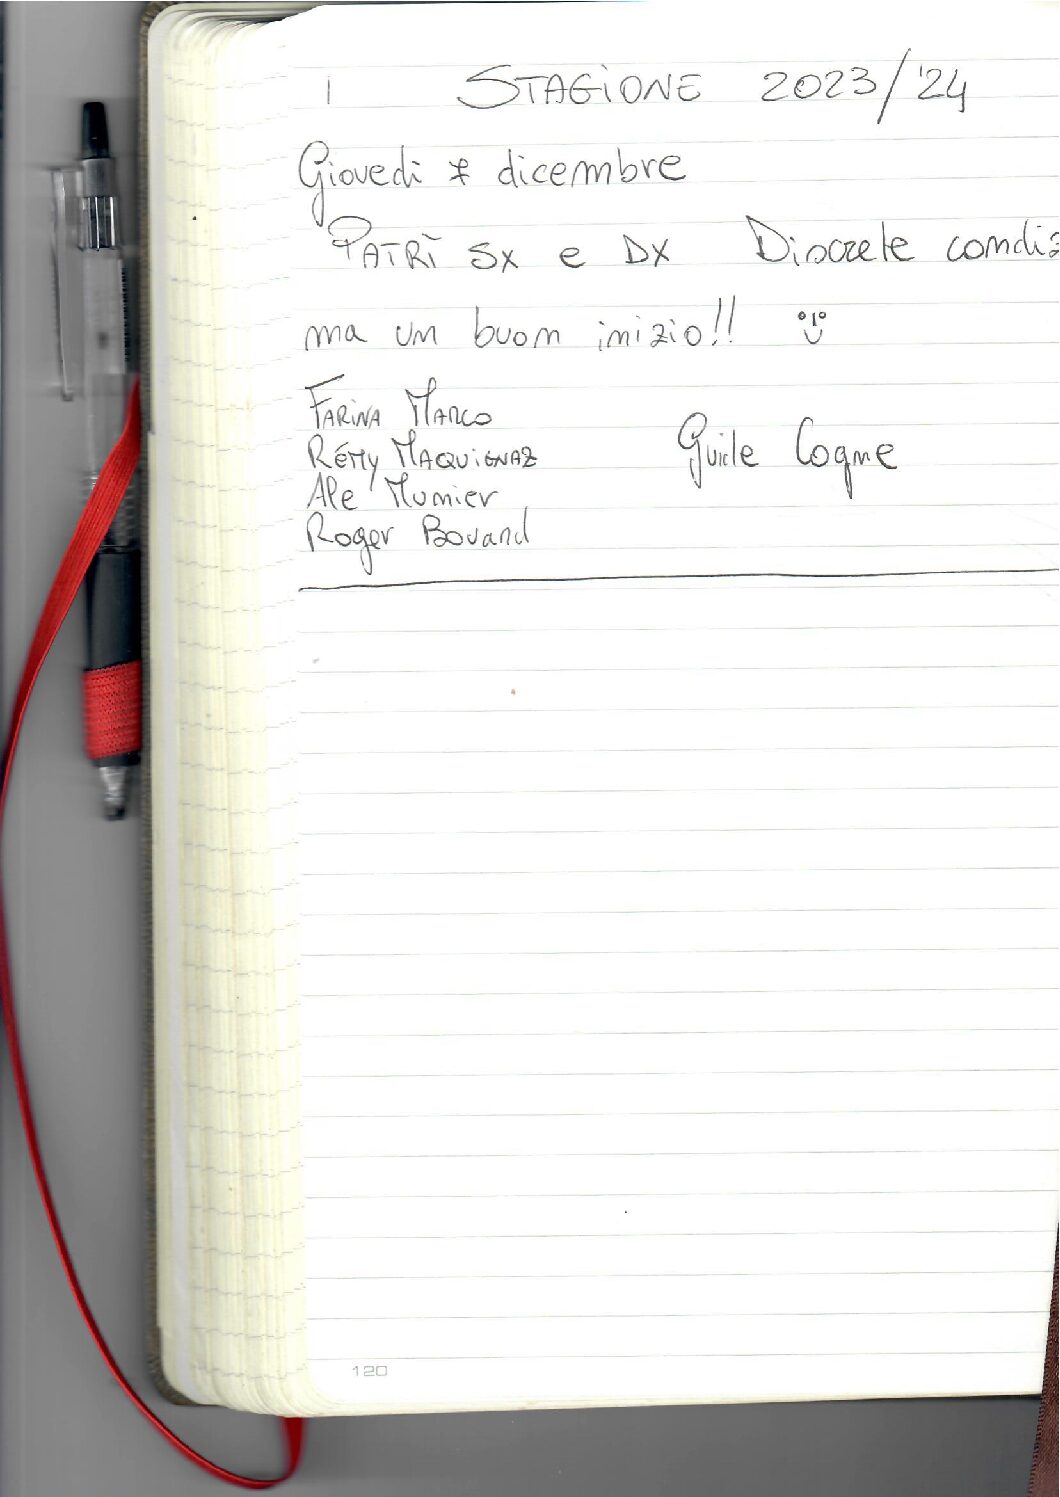 1 STAGIONE 2023/'24
Giovedì 7 dicembre
PATRÌ SX e DX Discrete condiz
ma un buon inizio!!
FARINA MARCO
RÉMY MAQUIGNAZ
Guide Cogne
Ale Munier
Roger Bovard
120